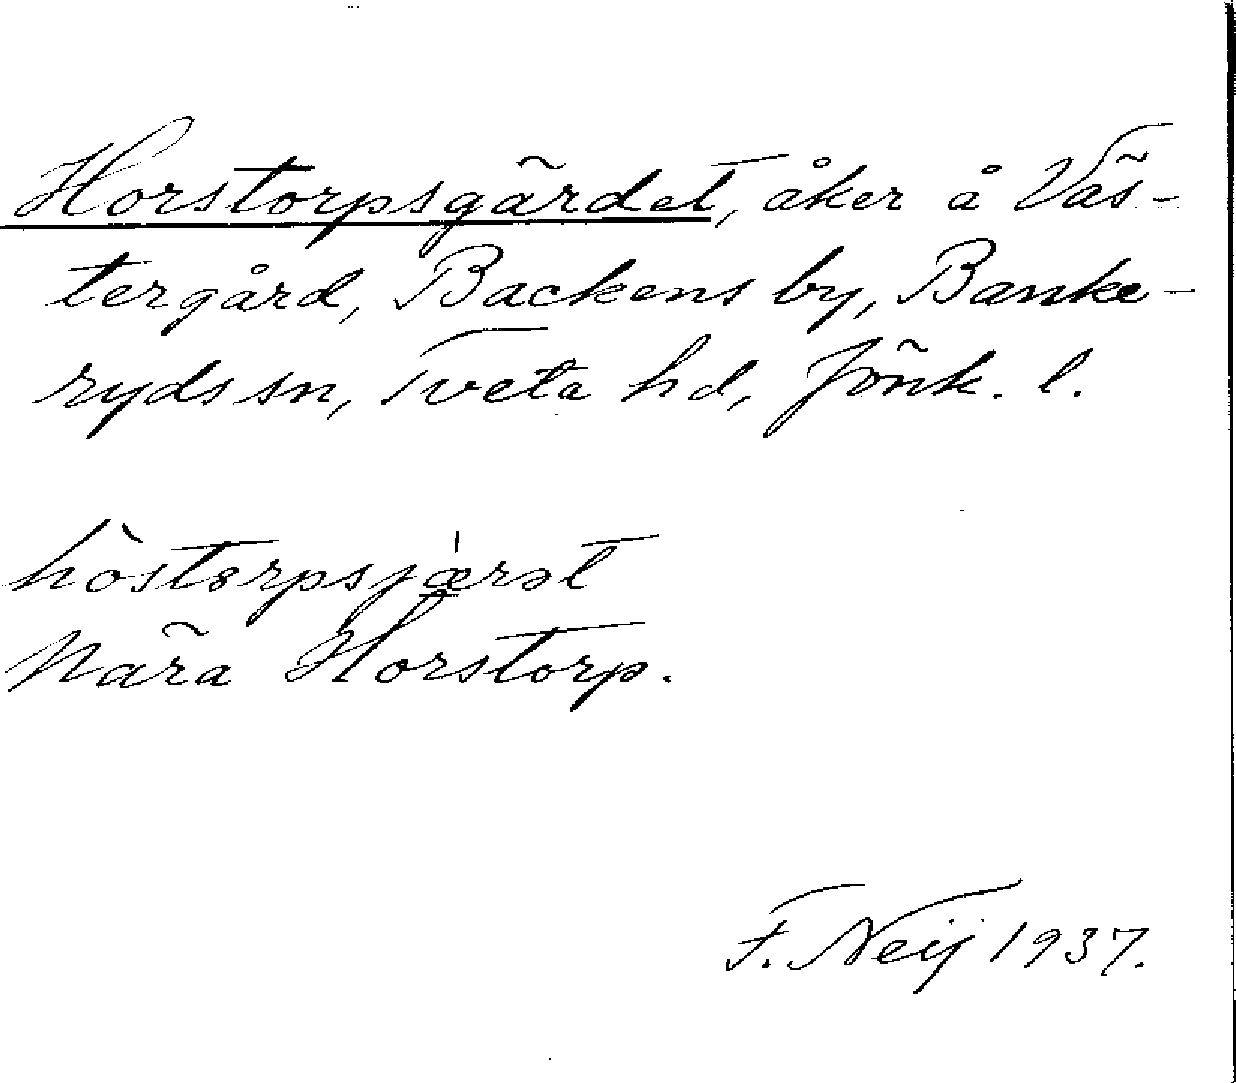 Horstorpsgärdet, åker å Väs-
tergård, Backens by, Banke-
ryds sn, Tveta hd, Jönk. l.
hòstorpsjæ̀rət
Nära Horstorp.
F. Neij 1937.